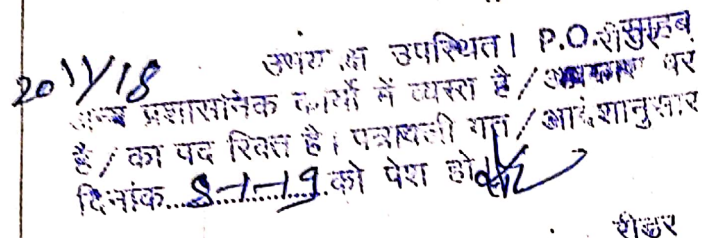 20/11/18 उभय पक्ष उपस्थित। P.O. साहब
अन्य प्रशासनिक कार्यों में व्यस्त है / अवकाश पर
है / का पद रिक्त है। पत्रावली गत / आदेशानुसार
दिनांक...8-1-19...को पेश हो
रीडर